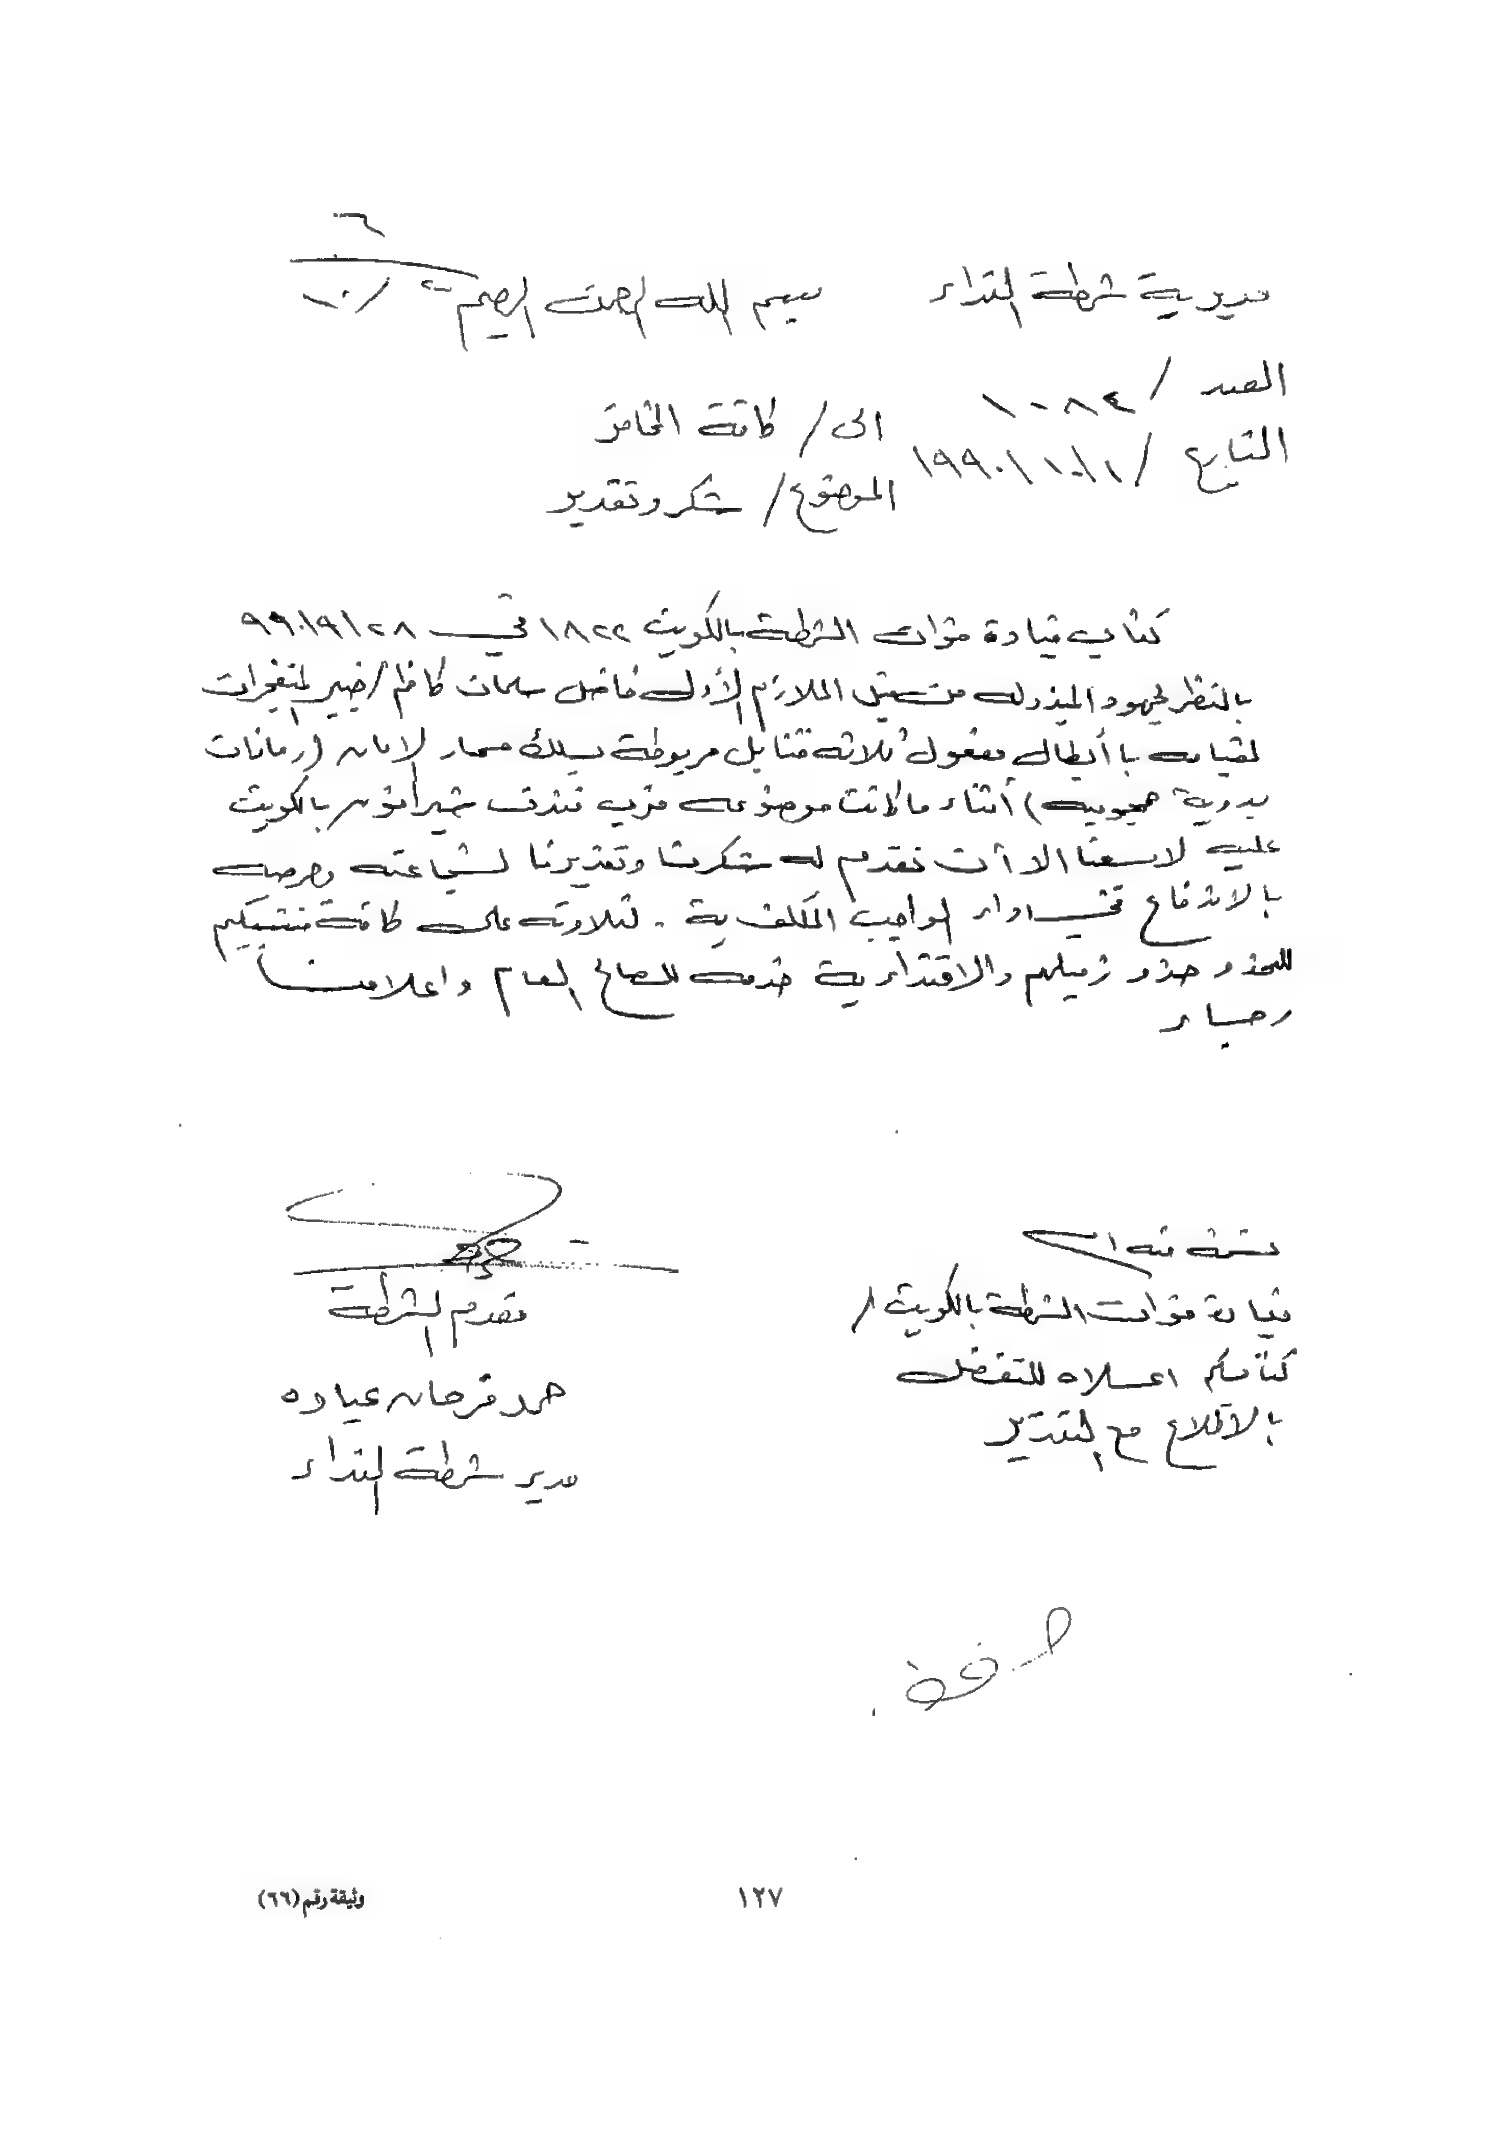 ٦
مديرية شرطة الفداء
بسم الله الرحمن الرحيم
١٠/
العدد / ١٠٨٤
التاريخ / ١٩٩٠/١٠/١
الى / كافة المخافر
الموضوع / شكر وتقدير
كتاب قيادة قوات الشرطة بالكويت ١٨٢٢ في ٩٩٠/٩/٢٨
بالنظر لجهود المبذوله من قبل الملازم الأول فاضل سلمان كاظم / خبير المتفجرات
لقيامه با أبطال مفعول ثلاثة قنابل مربوطة بسلك مسمار لامان (رمانات
يدوية هجوميه) أثناء ما كانت موضوعه قرب فندق شيراتون بالكويت
عليه لايسعنا الا أن نقدم له شكرنا وتقديرنا لشجاعته وحرصه
بالاندفاع في اداء الواجب المكلف به . لتلاوته على كافة منتسبيكم
للحذو حذو زميلهم والاقتداء به خدمه للصالح العام واعلامنا
رجاء
نسخة منه الى
قيادة قوات الشرطة بالكويت /
كتابكم اعلاه للتفضل
بالاطلاع مع التقدير
مقدم الشرطة
حمد فرحان عياده
مدير شرطة الفداء
١٢٧
وثيقة رقم (٦٦)